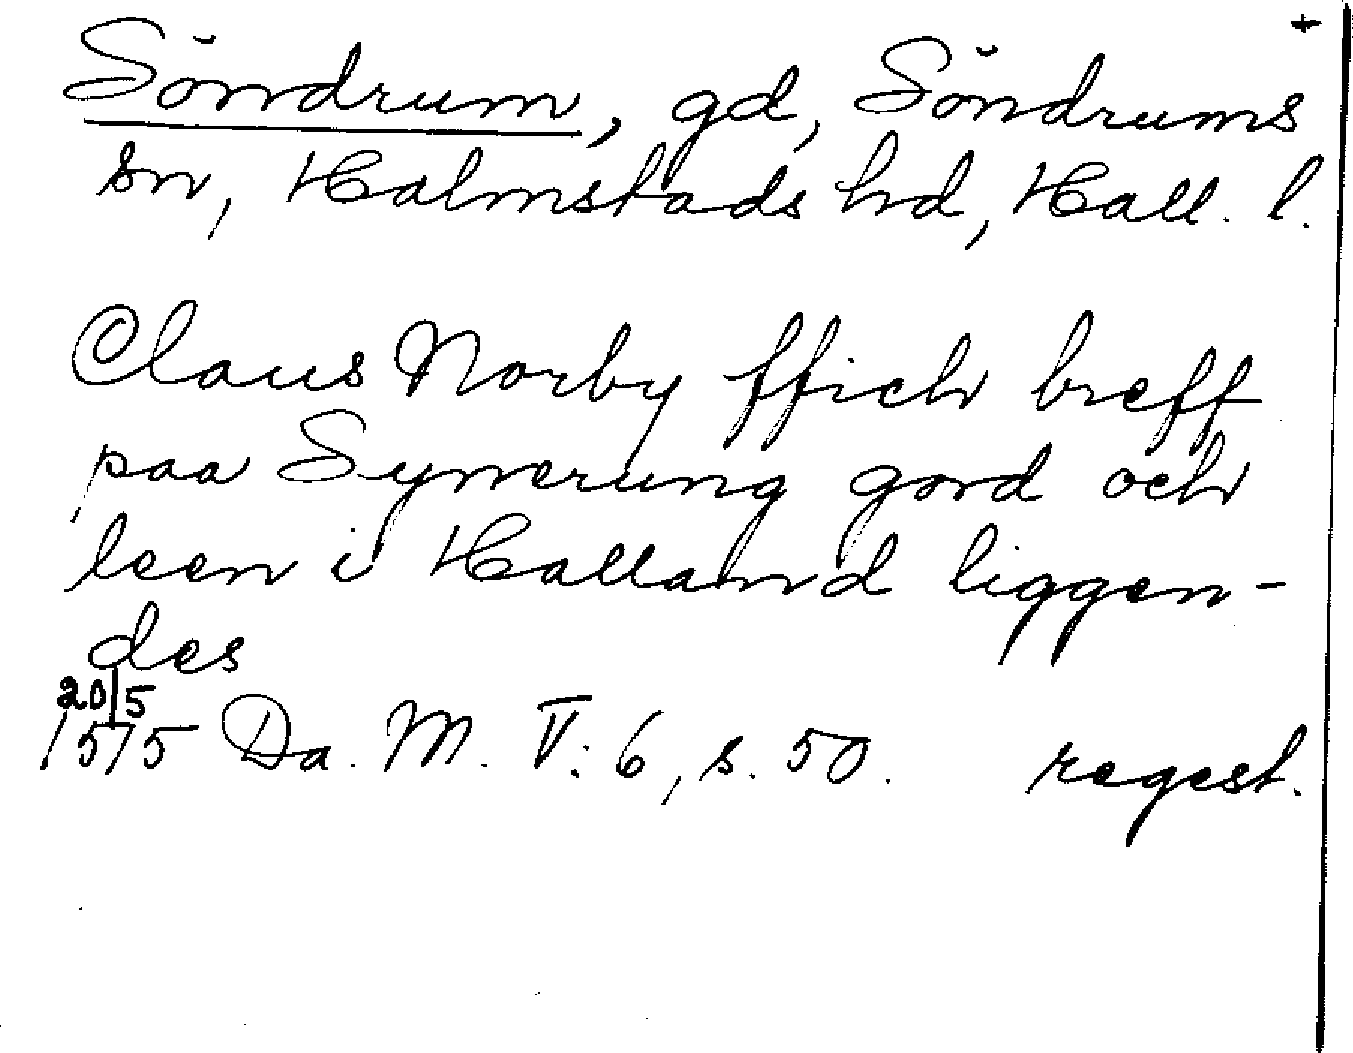 +
Söndrum, gd, Söndrums
sn, Halmstads hd, Hall. l.
Claus Norby ffich breff
paa Synerung gord och
leen i Halland liggen-
des
20/5
1515 Da. M. V: 6, s. 50. regest.